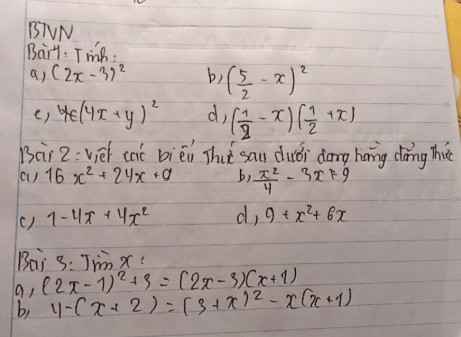 BTVN
Bài 1: Tính:
a, (2x - 3)² b, (5/2 - x)²
c, (4x + y)² d, (1/2 - x)(1/2 + x)
Bài 2: Viết các biểu thức sau dưới dạng hằng đẳng thức
a, 16x² + 24x + 9 b, x²/4 - 3x + 9
c, 1 - 4x + 4x² d, 9 + x² + 6x
Bài 3: Tìm x:
a, (2x - 1)² + 3 = (2x - 3)(x + 1)
b, 4 - (x + 2) = (3 + x)² - x(x + 1)